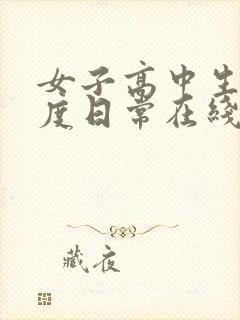 女子高中生
度日常在线
藏夜